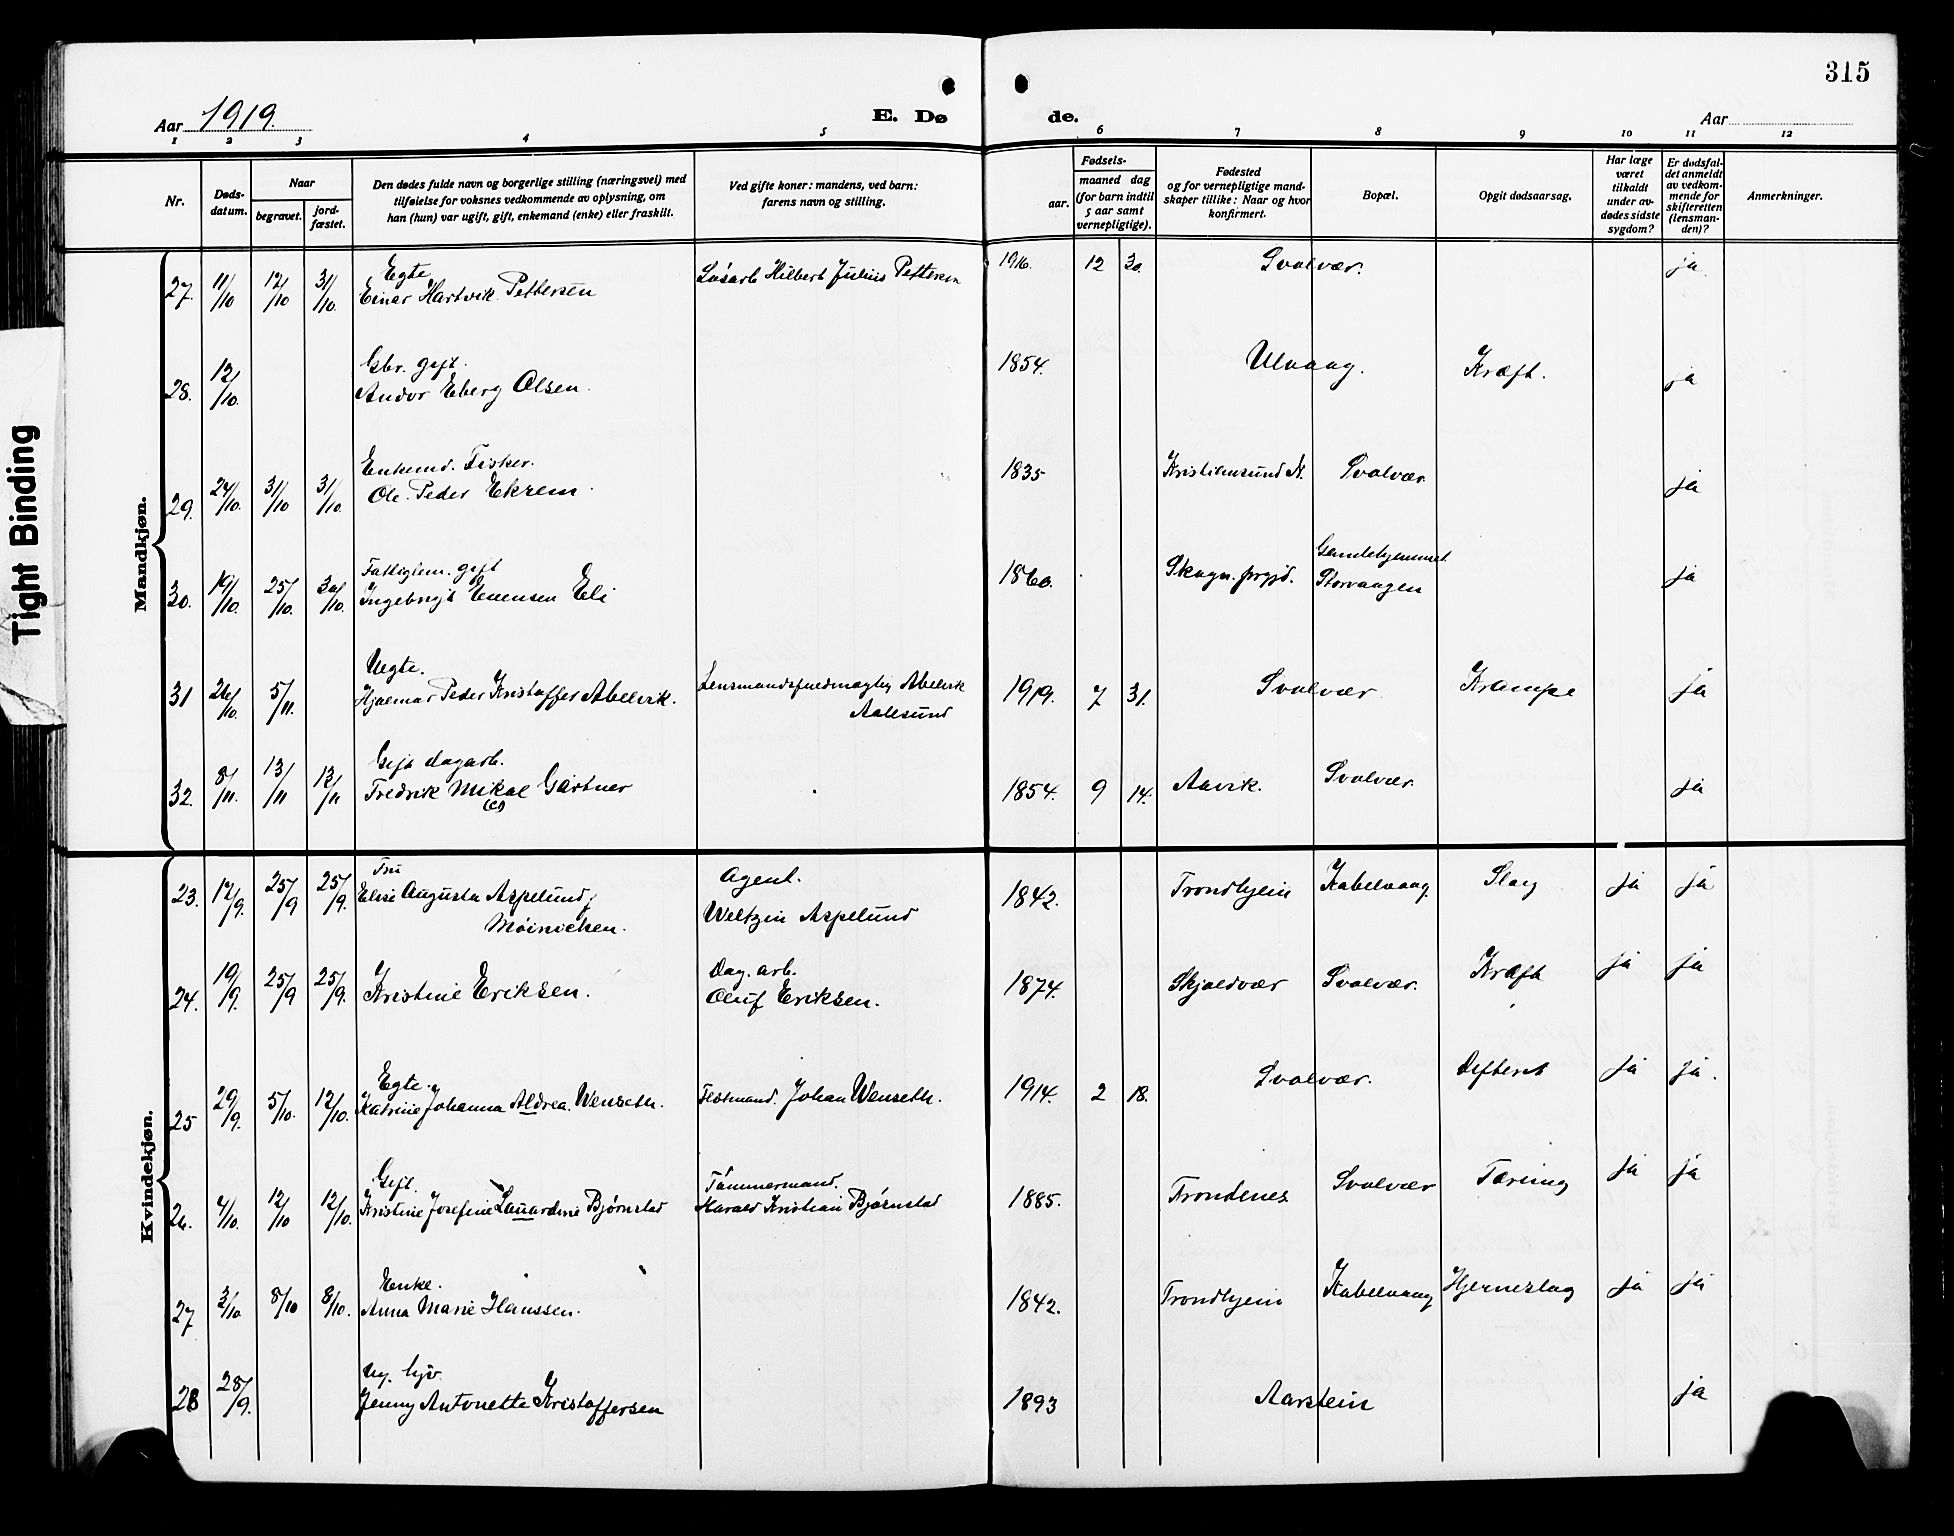 315
Aar 1919.
E. Dø
de.
Aar
1 2 3 4 5 6 7 8 9 10 11 12
Nr.
Døds-
datum.
Naar
begravet.
jord-
fæstet.
Den dødes fulde navn og borgerlige stilling (næringsvei) med
tilføielse for voksnes vedkommende av oplysning, om
han (hun) var ugift, gift, enkemand (enke) eller fraskilt.
Ved gifte koner: mandens, ved barn:
farens navn og stilling.
Fødsels-
aar.
maaned dag
(for barn indtil
5 aar samt
vernepligtige).
Fødested
og for vernepligtige mand-
skaper tillike: Naar og hvor
konfirmert.
Bopæl.
Opgit dødsaarsag.
Har læge
været
tilkaldt
under av-
dødes sidste
sygdom?
Er dødsfal-
det anmeldt
av vedkom-
mende for
skifteretten
(lensman-
den)?
Anmerkninger.
Tight Binding
Mandkjøn.
Egte
27. 11/10 12/10 31/10 Einar Hartvik Pettersen Løsarb Hilbert Julius Pettersen 1916. 12 30. Svolvær. ja.
Gbr. gift.
28. 12/10. Andor Eberg Olsen. 1854. Ulvaag. Kræft. ja
Enkemd. Fisker.
29. 24/10. 31/10 31/10. Ole Peder Ekrem. 1835 Kristiansund N. Svolvær. ja
Fattiglem. gift Gamlehjemmet
30. 19/10. 25/10. 30/10. Ingebrigt Evensen Eli 1860. Skogn prgjd. Storvaagen ja
Uegte.
31 26/10. 5/11. Hjalmar Peder Kristoffer Abelvik. Lensmandsfuldmægtig Abelvik 1919. 7 31. Svolvær. Krampe ja
Aalesund
Gift dagarb.
32. 8/11. 13/11 13/11 Fredrik Mikal Gärtner 1854. 9 14. Aavik. Svolvær. ja
(e)
Kvindekjøn.
Fru Agent.
23. 17/9. 25/9 25/9. Elise Augusta Aspelund f Weltzin Aspelund 1842. Trondhjem Kabelvaag. Slag ja ja
Møinichen.
Dag. arb.
24. 19/9. 25/9 25/9. Kristine Eriksen. Oluf Eriksen. 1874. Skjoldvær Svolvær. Kræft ja ja
Egte.
25 29/9. 5/10. 12/10. Katrine Johanna Aldrea. Wenseth. Flotmand. Johan Wenseth. 1914. 2 18. Svolvær. Difterit ja ja.
Gift. Tømmermand.
26. 4/10. 12/10 12/10. Kristine Josefine Lauardine Bjørnstad Harald Kristian Bjørnstad 1885. Trondenes Svolvær Tæring ja ja
Enke.
27 3/10 8/10 8/10. Anna Marie Hanssen. 1842. Trondhjem Kabelvaag Hjerneslag ja ja
Ug. hjv.
28 28/9. Jenny Antonette Kristoffersen 1893 Aarstein ja